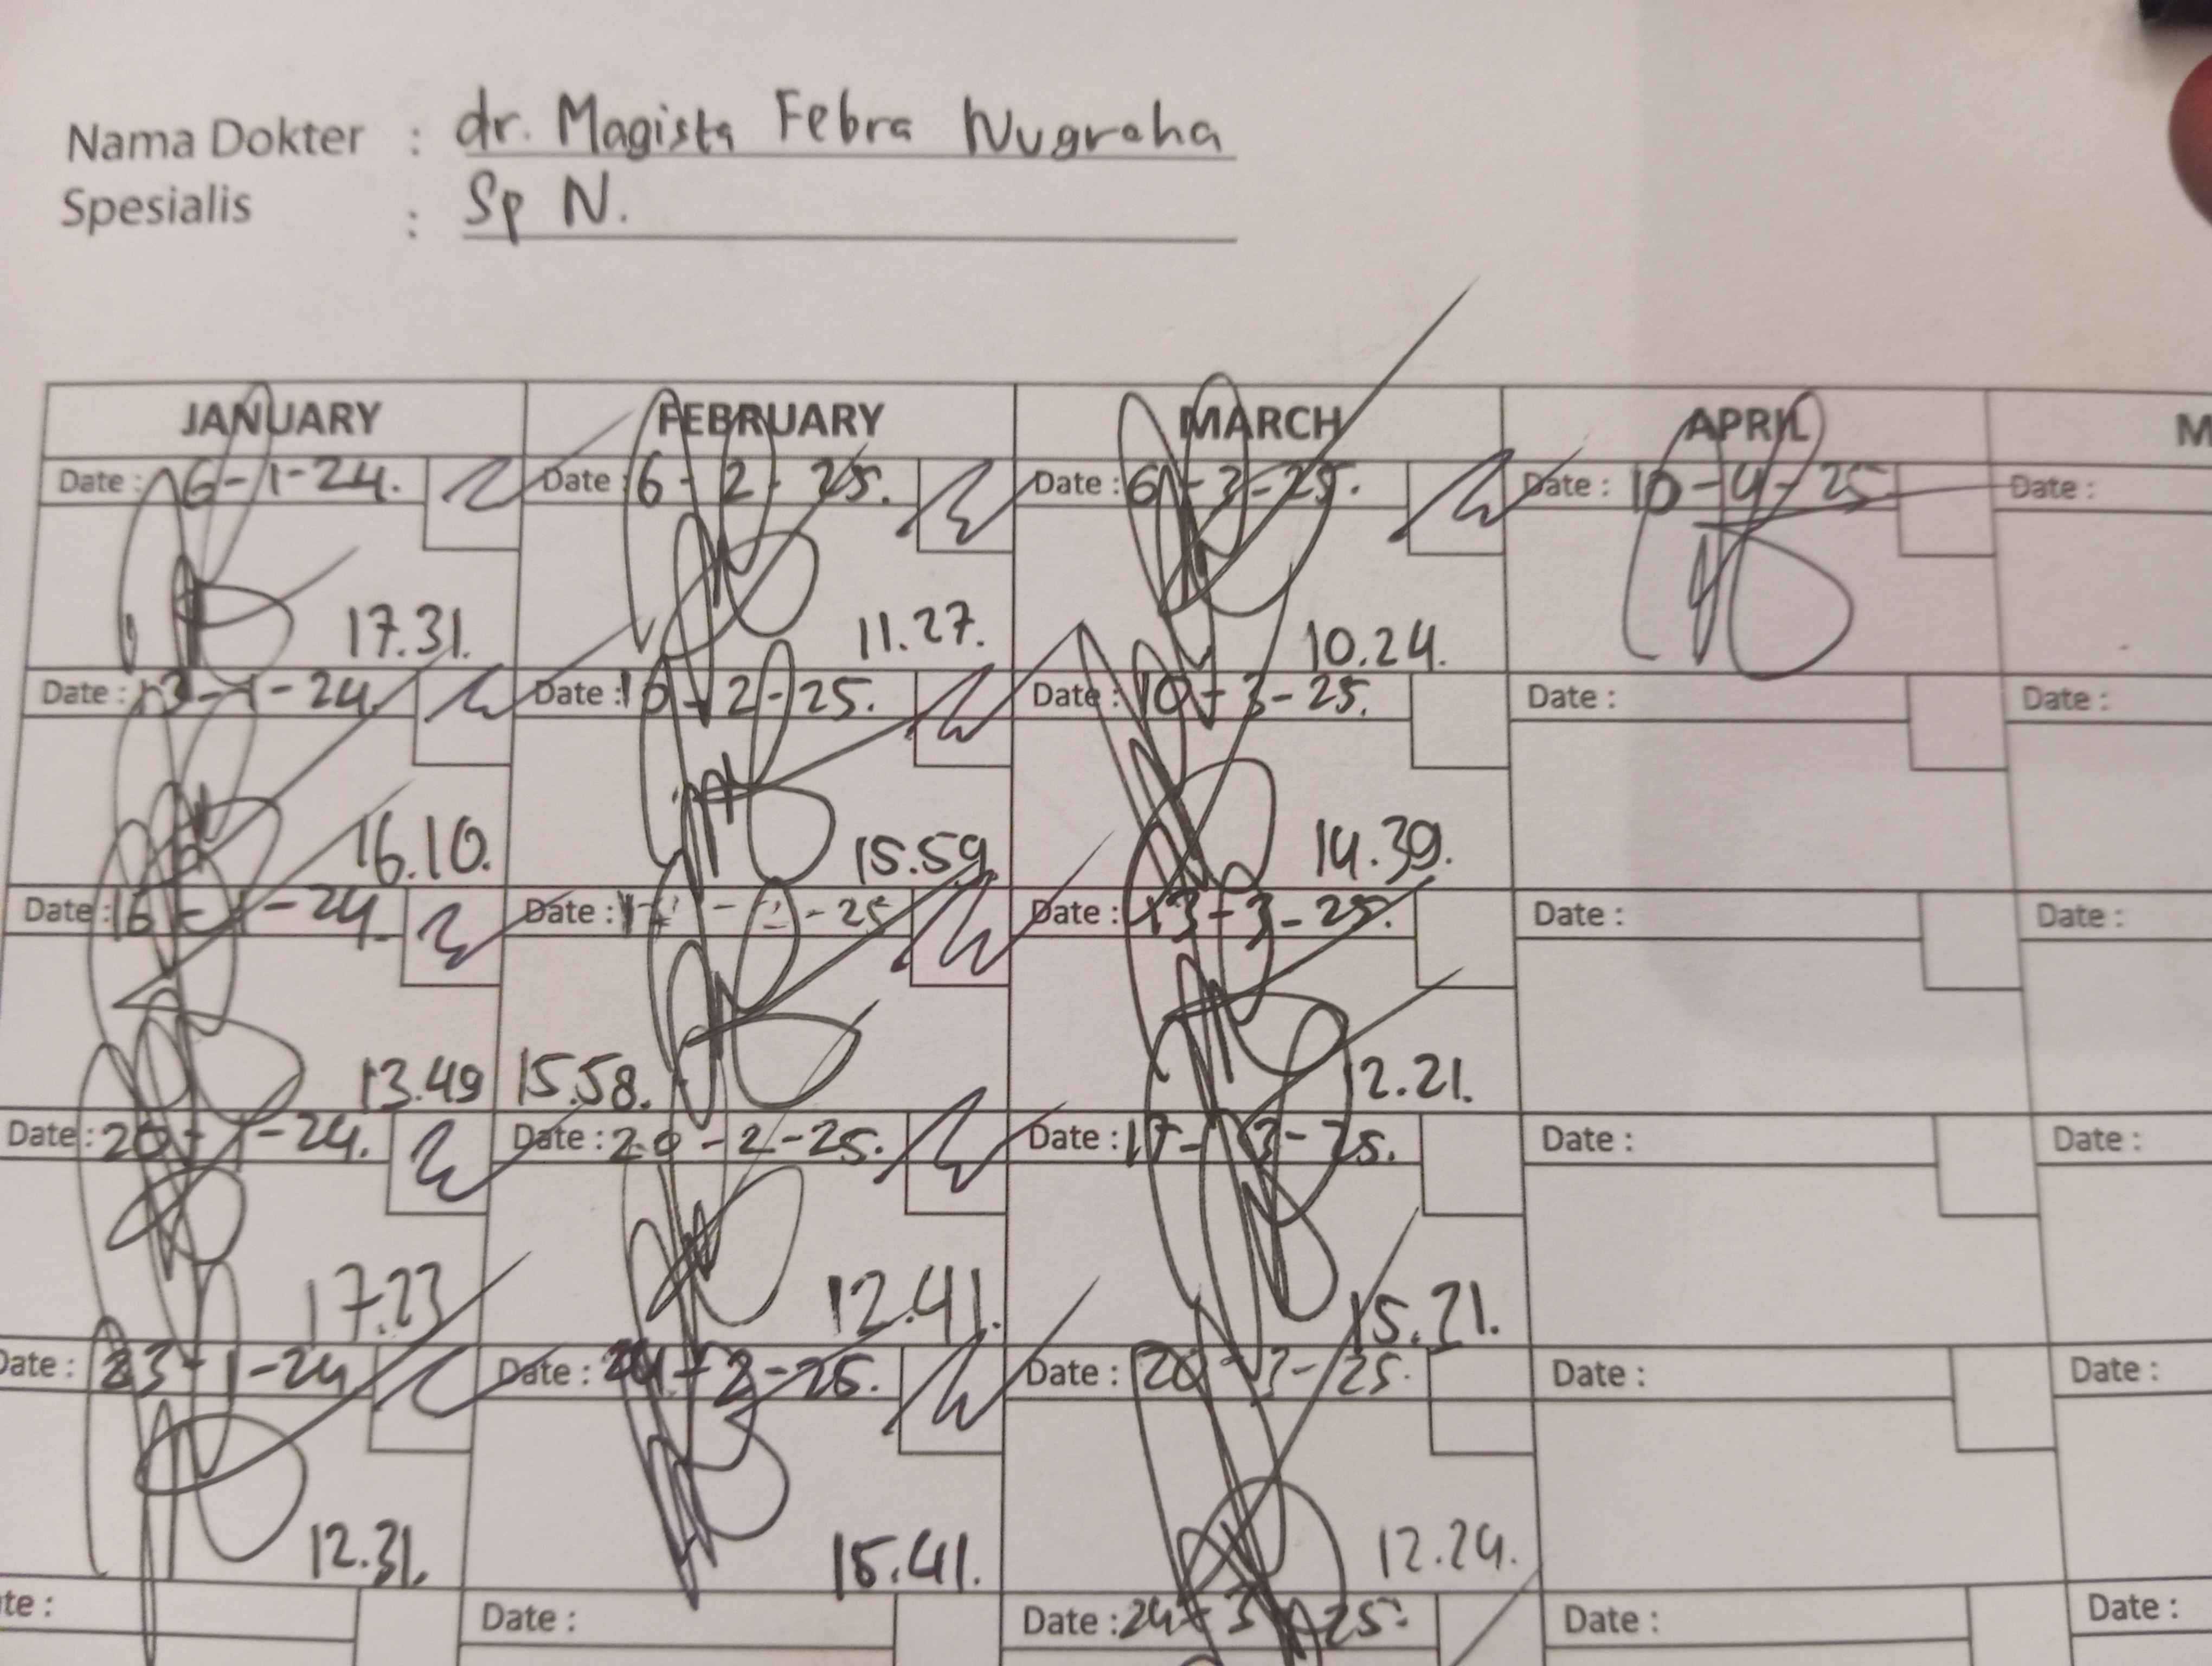 Nama Dokter : dr. Magista Febra Nugraha
Spesialis : Sp N.
JANUARY FEBRUARY MARCH APRIL M
Date : 6-1-24. Date : 6-2-25. Date : 6-3-25. Date : 10-4-25 Date :
17.31. 11.27. 10.24.
Date : 13-1-24. Date : 10-2-25. Date : 10-3-25. Date : Date :
16.10. 15.59. 14.39.
Date : 16-1-24. Date : 17-2-25 Date : 13-3-25. Date : Date :
13.49 15.58. 12.21.
Date : 20-1-24. Date : 20-2-25. Date : 17-3-25. Date : Date :
17.23 12.41. 15.21.
Date : 23-1-24 Date : 24-2-25. Date : 20-3-25. Date : Date :
12.31. 15.41. 12.24.
te : Date : Date : 24-3-25. Date : Date :